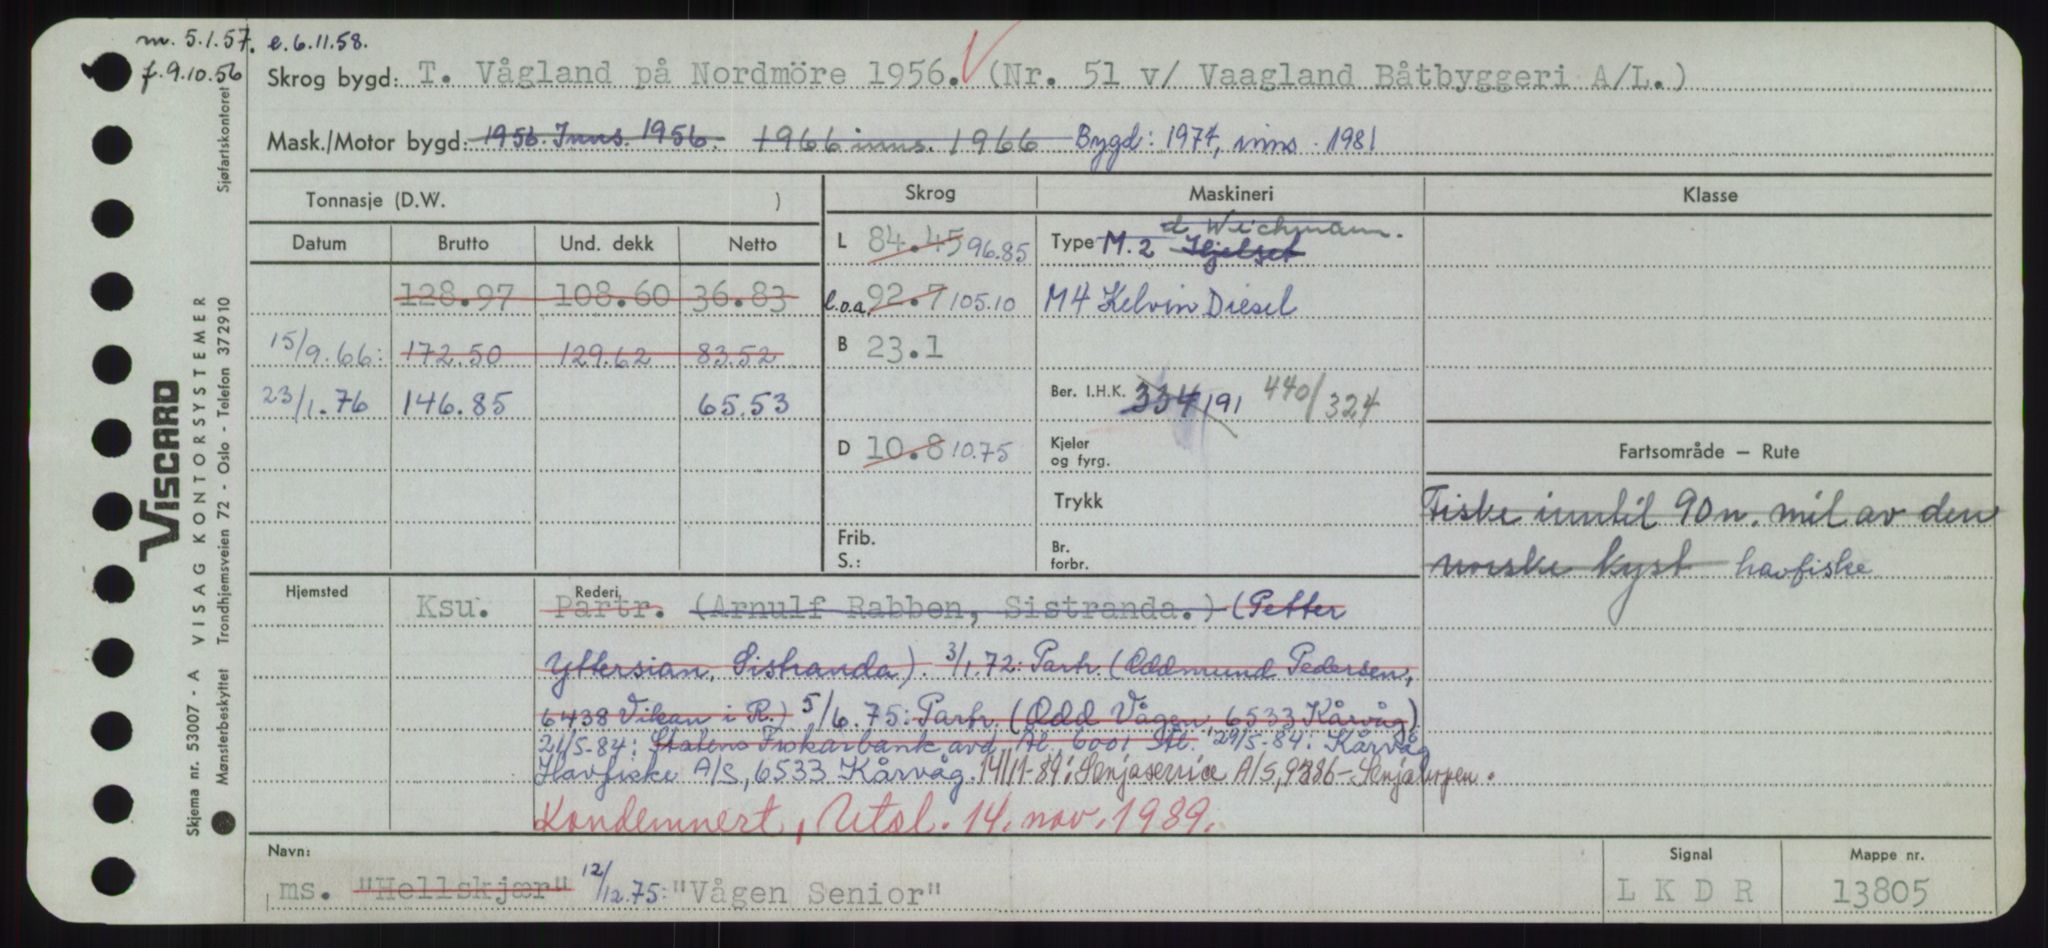 m. 5.1.57. e. 6.11.58.
f. 9.10.56
Skrog bygd: T. Vågland på Nordmöre 1956. (Nr. 51 v/ Vaagland Båtbyggeri A/L.)
Mask./Motor bygd: 1956. Inns. 1956. 1966 inns. 1966 Bygd: 1974, inns. 1981
Tonnasje (D.W. ) Skrog Maskineri Klasse
Datum Brutto Und. dekk Netto
L 84.45 96.85 Type M. 2 Hjelset d Wichmann.
128.97 108.60 36.83 l.o.a. 92.7 105.10 M4 Kelvin Diesel
15/9.66: 172.50 129.62 83.52 B 23.1
23/1.76 146.85 65.53 Ber. I.H.K. 334 191 440/324
D 10.8 10.75 Kjeler og fyrg.
Fartsområde — Rute
Trykk
Fiske inntil 90 n. mil av den
Frib.
S.:
Br. forbr.
norske kyst havfiske
Hjemsted Rederi
Ksu. Partr. (Arnulf Rabben, Sistranda.) (Petter
Yttersian, Sistranda). 3/1.72: Partr. (Oddmund Pedersen,
6438 Vikan i R.) 5/6.75: Partr. (Odd Vågen 6533 Kårvåg)
21/5-84: Statens Fiskarbank avd. Ål., 6001 Ål. 29/5-84: Kårvåg
Havfiske A/S, 6533 Kårvåg. 14/11-89: Senjaservice A/S, 9386-Senjahopen.
Kondemnert, Utsl. 14. nov. 1989.
Navn:
ms. "Hellskjær" 12/12.75: "Vågen Senior"
Signal
L K D R
Mappe nr.
13805
VISCARD
Skjema nr. 53007 - A VISAG KONTORSYSTEMER
Mønsterbeskyttet Trondhjemsveien 72 - Oslo - Telefon 372910 Sjøfartskontoret